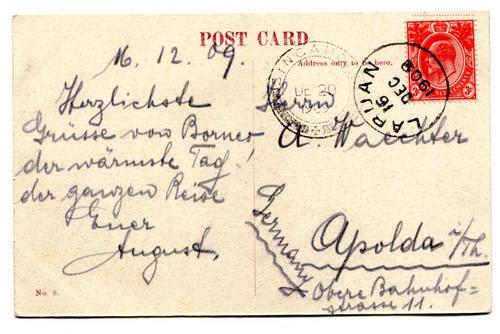 POST CARD
16.12.09.
Address only to be here.
Herzlichste
Grüsse von Borneo
der wärmste Tag!
der ganzen Reise
Euer
August.
No. 8.
SINGAPO
DE 20
LABUAN
16
DEC
1909
Herrn
A. Waechter
Apolda i/Th.
Germany
Obere Bahnhof=
strasse 11.